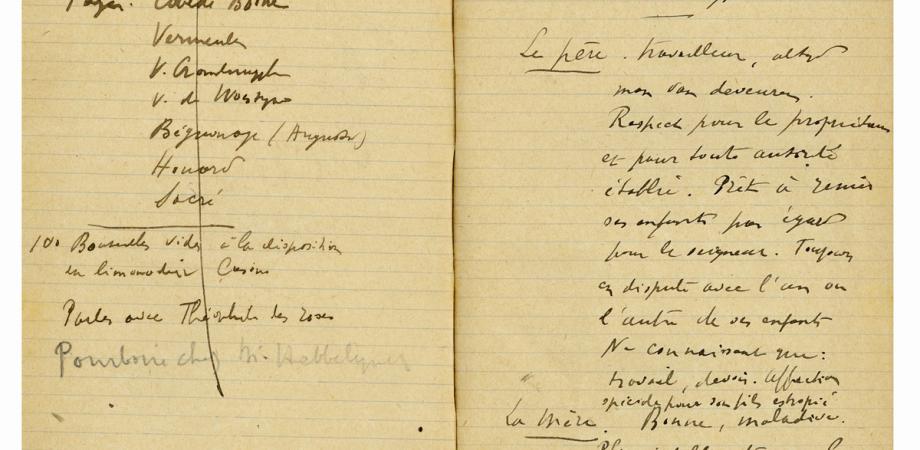 Payer.
Vermeulen
V. de Woestyne
Béguinage (Auguste)
Houard
Sacré
100 Bouteilles vides à la disposition
du limonadier Casino
Parler avec Théophile des roses
Pourboire chez M. Hebbelynck
Le père. travailleur, altéré
mon
Respect pour le propriétaire
et pour toute autorité
établie. Prêt à renier
ses enfants par égard
pour le seigneur. Toujours
en dispute avec l'un ou
l'autre de ses enfants
Ne connaissant que :
travail, devoir. Affection
spéciale pour son fils estropié
La Mère. Bonne, maladive.